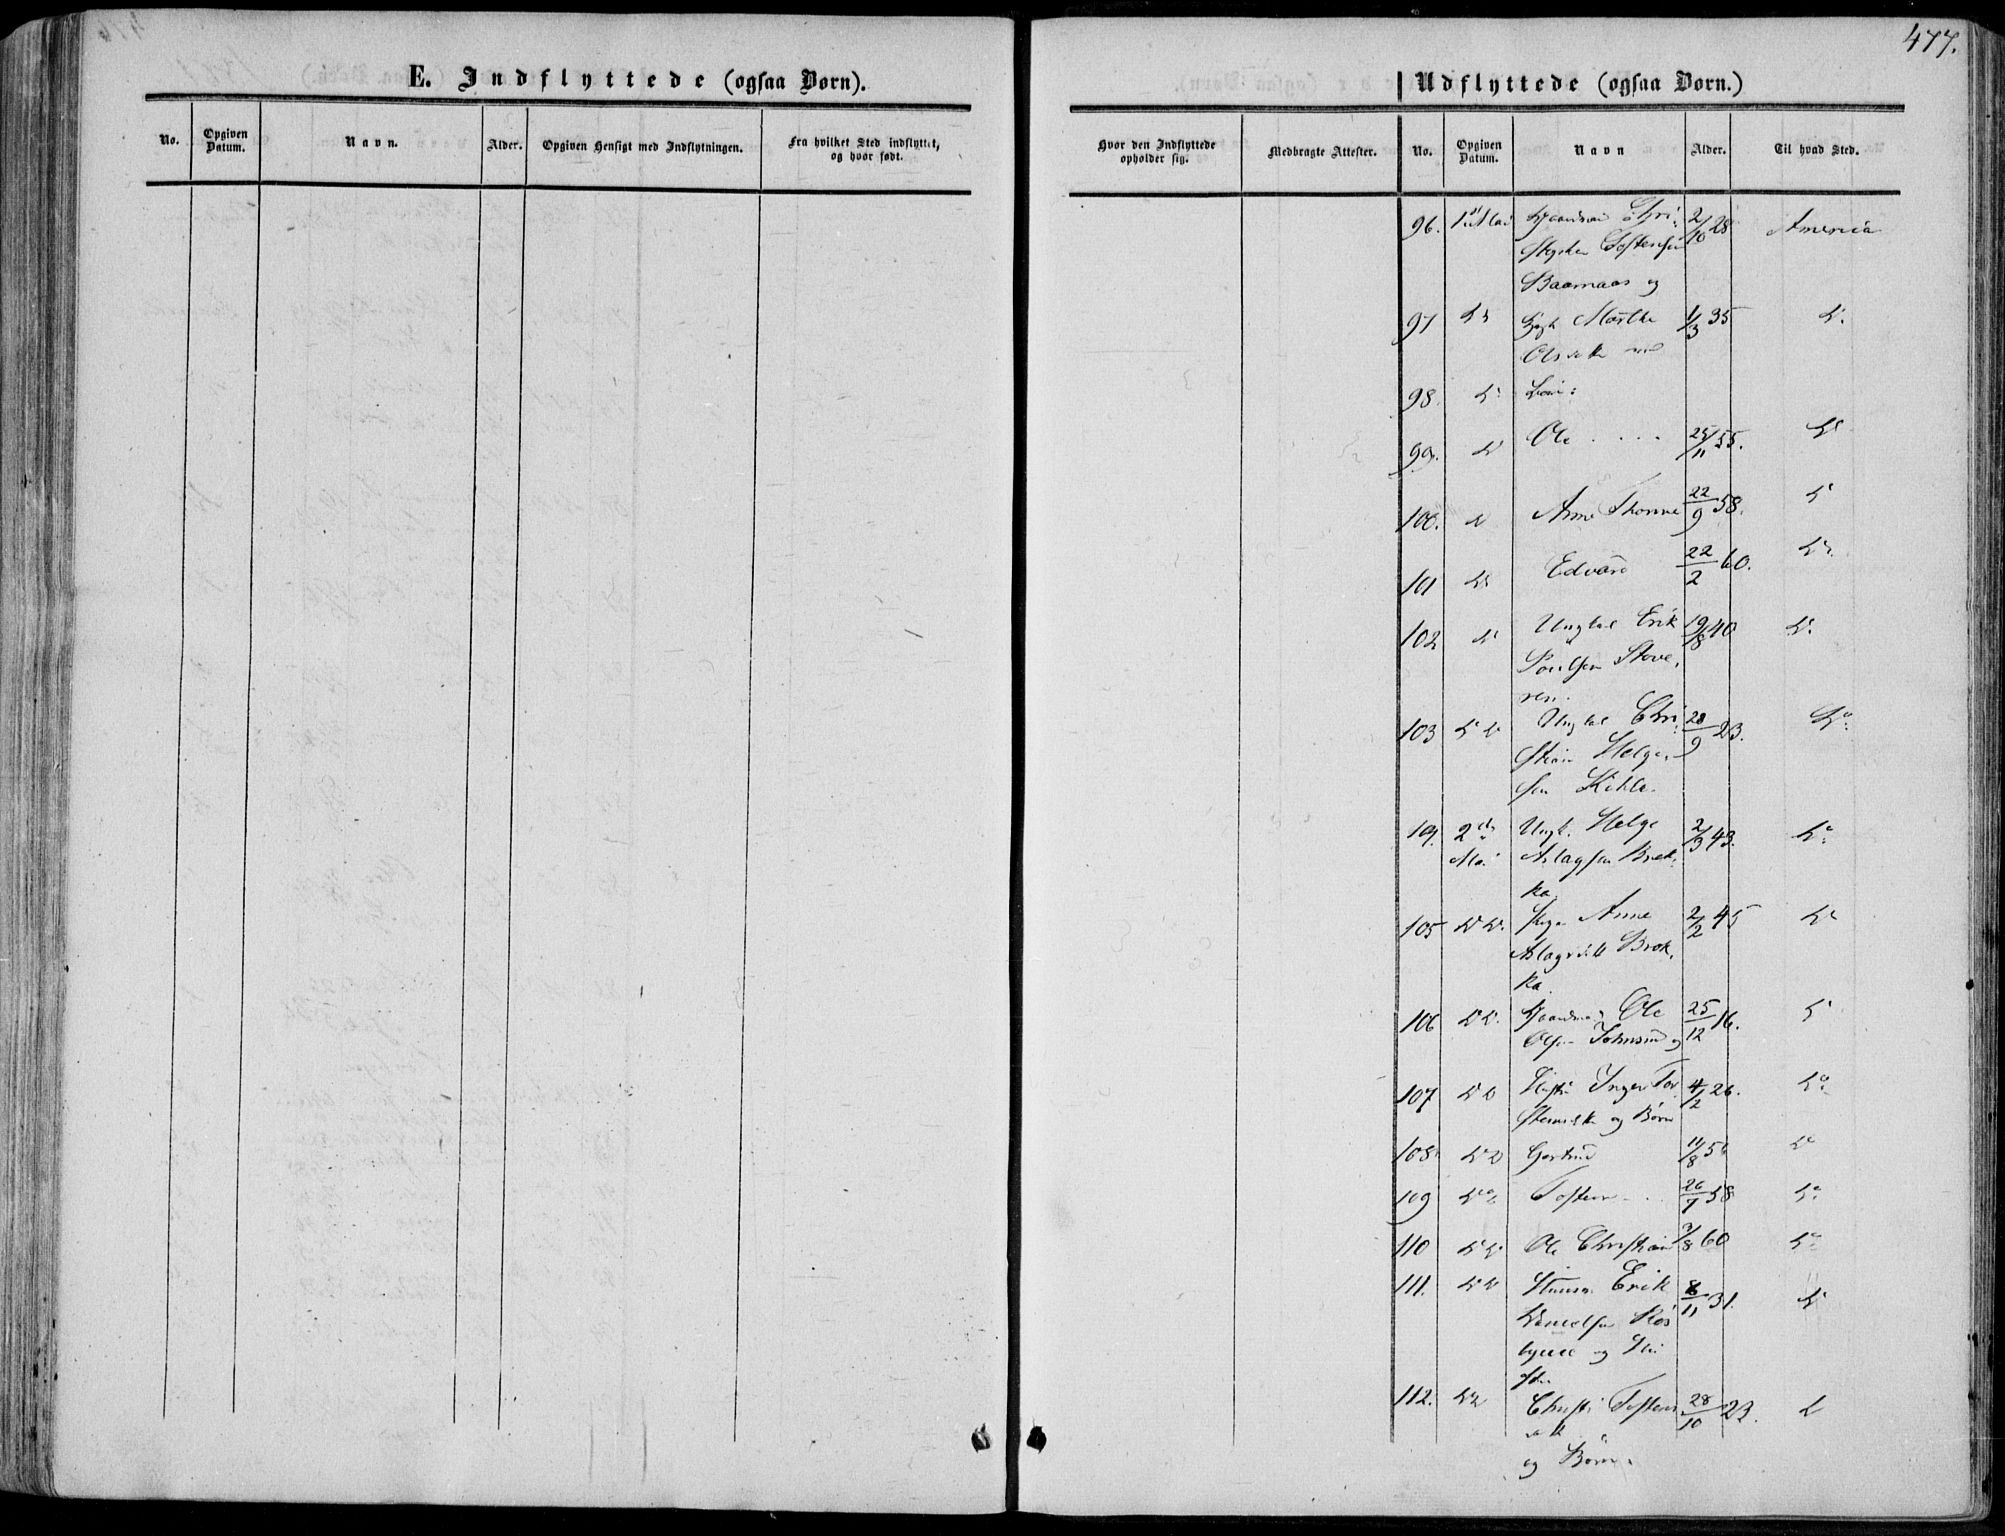 477.
E. Indflyttede (ogsaa Børn).
No. Opgiven Datum. Navn. Alder. Opgiven Hensigt med Indflytningen. Fra hvilket Sted indflyttet, og hvor født.
Udflyttede (ogsaa Børn.)
Hvor den Indflyttede opholder sig. Medbragte Attester. No. Opgiven Datum. Navn Alder. Til hvad Sted.
96. 1ste Mai Gaardmd Chri- 2/10 28. America
stopher Tostensen
Baarnaas og
97 Do Marthe 1/3 35 Do.
Olsdatter med
98. Do Børn:
99. Do Ole . . . . 25/11 55. Do
100. Do Anne Thonine 22/9 58. Do
101 Do Edvard 22/2 60. Do.
102 Do Ungkal Erik 19/8 40 Do.
Poulsen Stove-
ren.
103 Do Do Ungkal Chri- 28/9 23. Do.
stian Helge-
sen Kihle.
104. 2den Ungk. Helge 2/3 43. Do.
Mai Aslagsen Brek-
ka
105 Do Do. Pige Anne 2/2 45 Do
Aslagsdatt Brek-
ka.
106 Do Do. Gaardmd Ole 25/12 16. Do
Olsen Johnsrud og
107 Do Do Hustru Inger Tor 4/12 26. Do.
stensdatter og Børn
108. Do Do Gertrud 11/8 56 Do
109 Do Do Tosten . . 26/7 58 Do.
110 Do Do Ole Christian 7/8 60 Do.
111. Do Do Huusm. Erik 8/11 31. Do
og Hu
stru
112. Do Do Christi Tostens 28/10 23. Do
datt
og Børn.